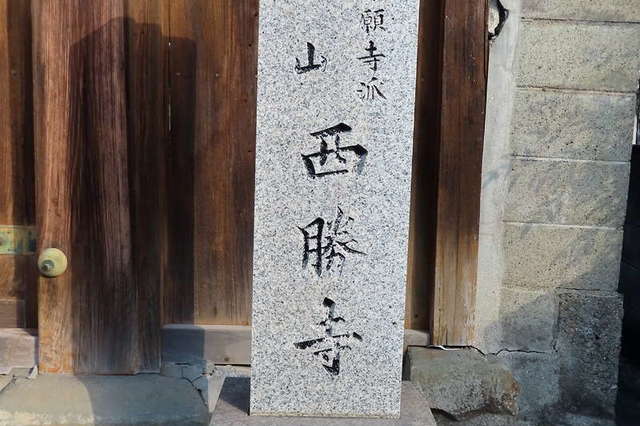 願寺派
山
西勝寺